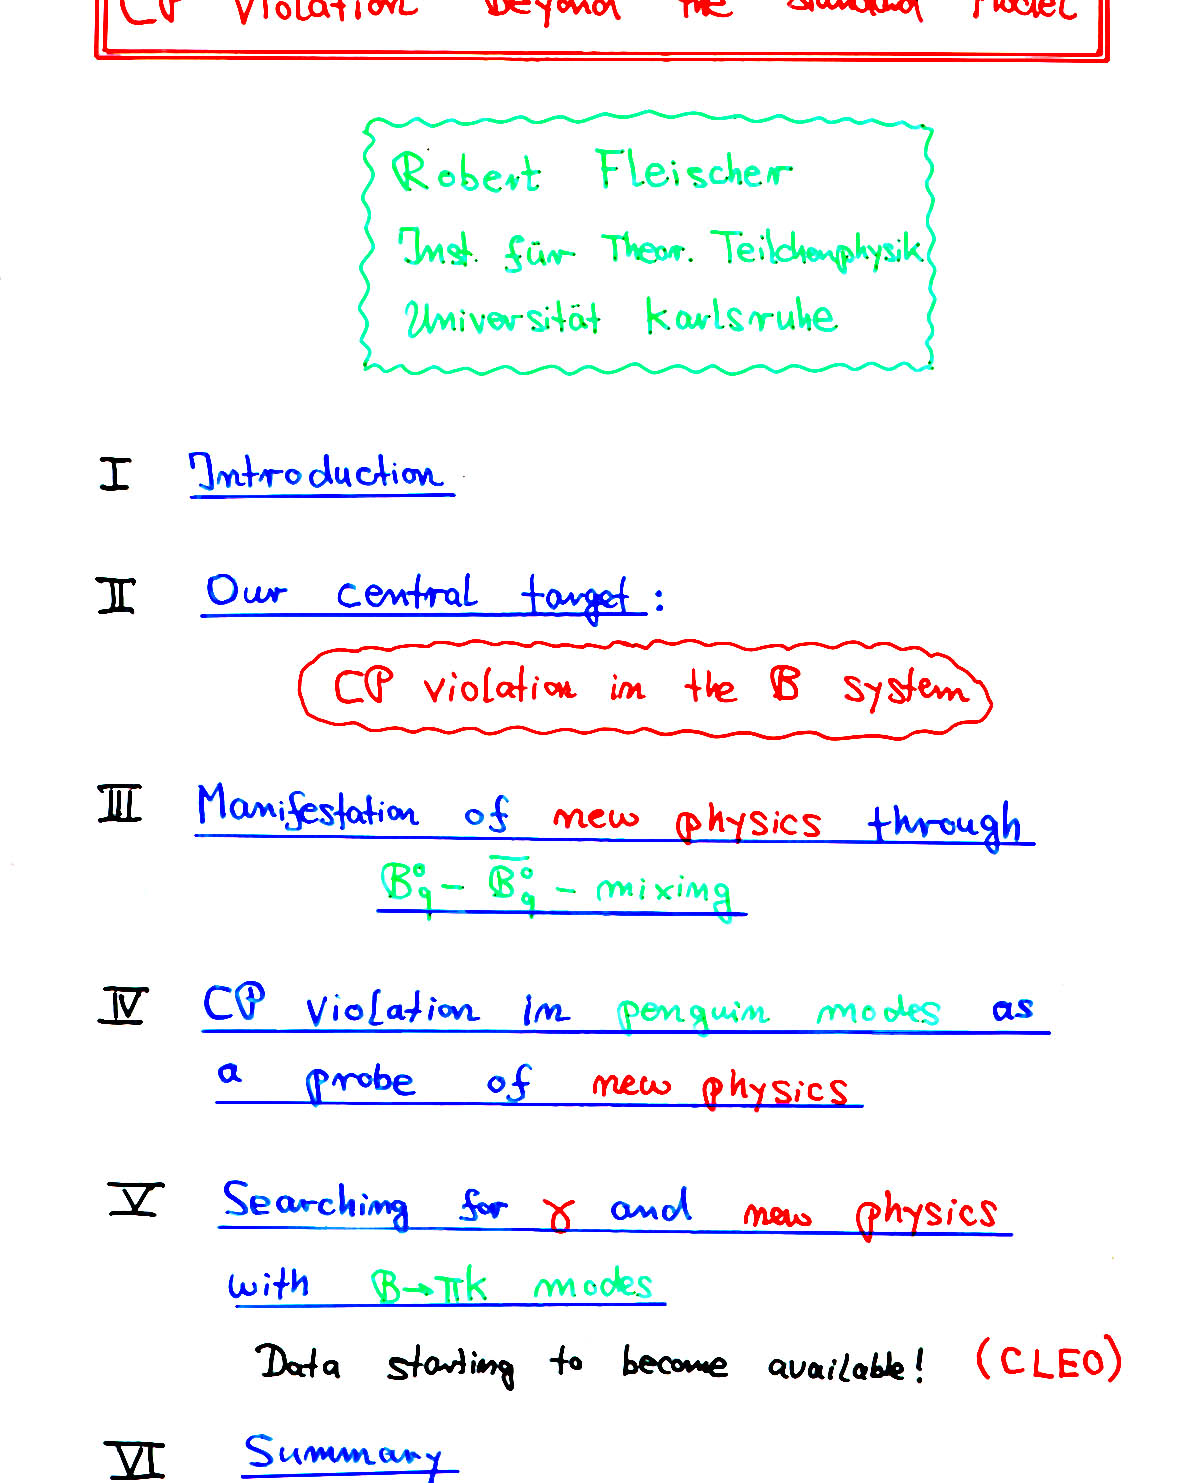 CP Violation Beyond the Standard Model
Robert Fleischer
Inst. für Theor. Teilchenphysik
Universität Karlsruhe
I Introduction
II Our central target:
CP violation in the B system
III Manifestation of new physics through
B⁰_q – B̅⁰_q – mixing
IV CP violation in penguin modes as
a probe of new physics
V Searching for γ and new physics
with B→πK modes
Data starting to become available! (CLEO)
VI Summary